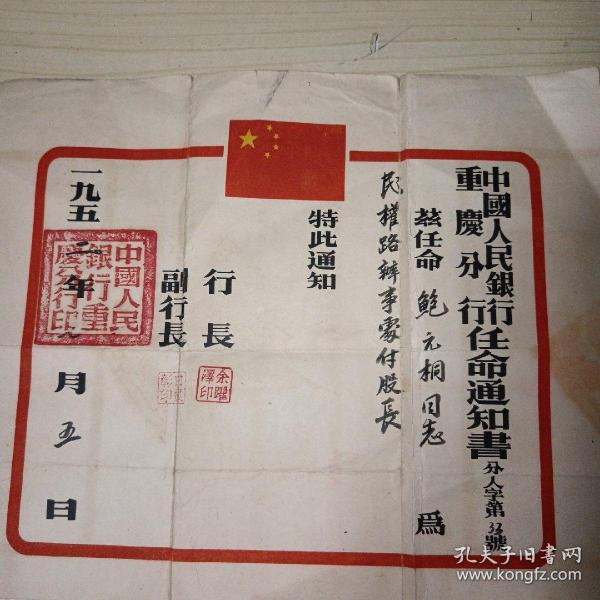 中國人民銀行任命通知書
重慶分行
分人字第33號
茲任命 鮑元桐同志 為
民權路辦事處付股長
特此通知
行長
余躍澤印
副行長
一九五 年 月五日
中國人民銀行重慶分行印
孔夫子旧书网
www.kongfz.com